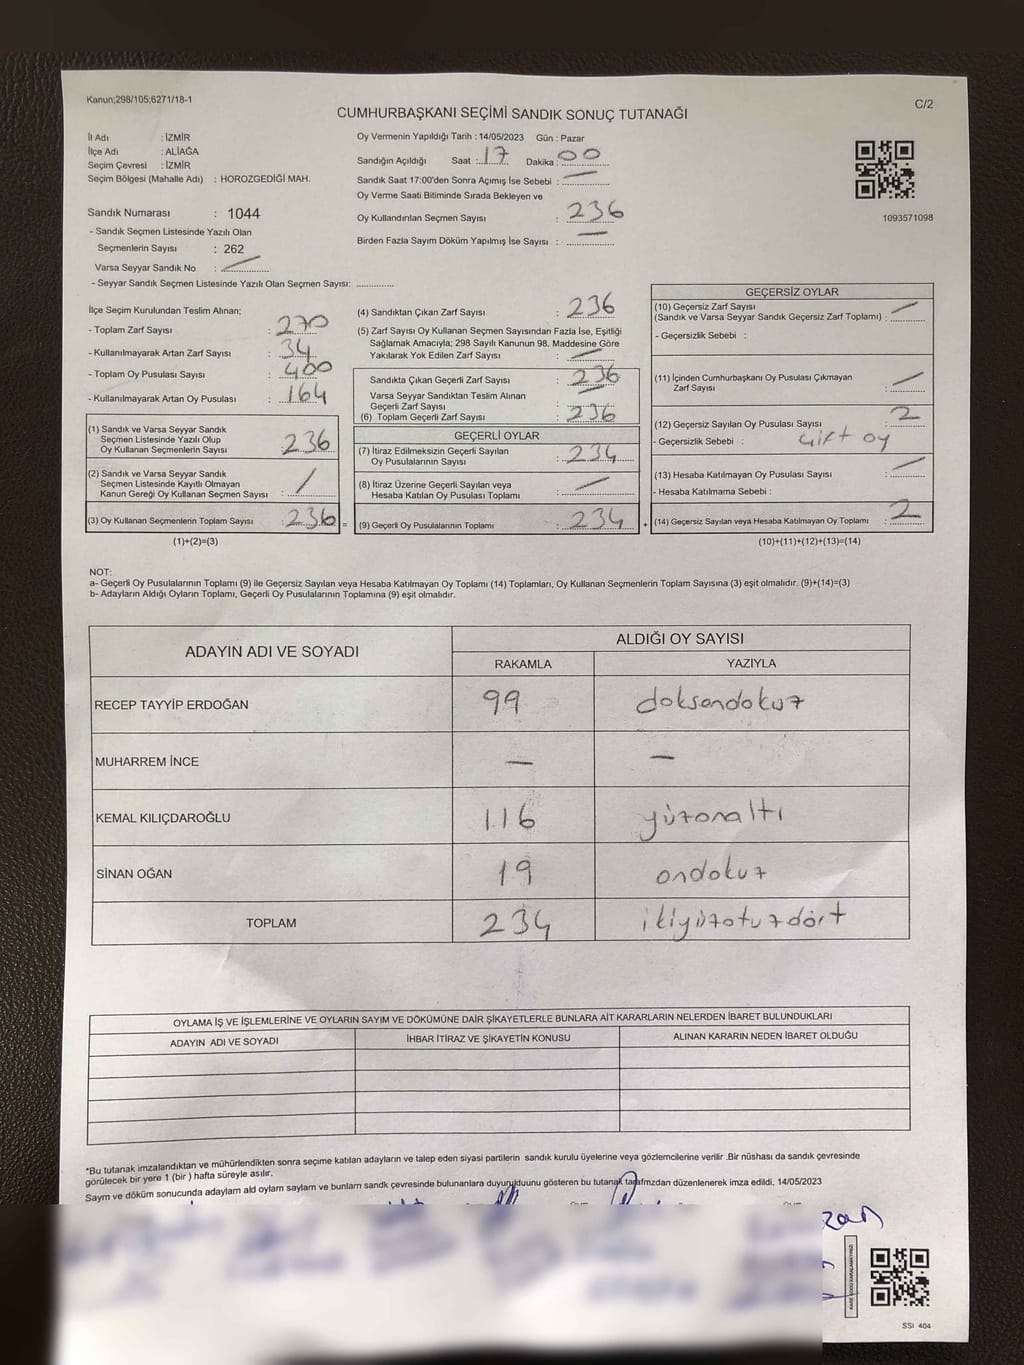 Kanun;298/105;6271/18-1
C/2
CUMHURBAŞKANI SEÇİMİ SANDIK SONUÇ TUTANAĞI
İl Adı : İZMİR
İlçe Adı : ALİAĞA
Seçim Çevresi : İZMİR
Seçim Bölgesi (Mahalle Adı) : HOROZGEDİĞİ MAH.
Sandık Numarası : 1044
- Sandık Seçmen Listesinde Yazılı Olan
Seçmenlerin Sayısı : 262
Varsa Seyyar Sandık No :
- Seyyar Sandık Seçmen Listesinde Yazılı Olan Seçmen Sayısı:
Oy Vermenin Yapıldığı Tarih : 14/05/2023 Gün : Pazar
Sandığın Açıldığı Saat : 17 Dakika : 00
Sandık Saat 17:00'den Sonra Açımış İse Sebebi : —
Oy Verme Saati Bitiminde Sırada Bekleyen ve
Oy Kullandırılan Seçmen Sayısı : 236
Birden Fazla Sayım Döküm Yapılmış İse Sayısı : —
1093571098
İlçe Seçim Kurulundan Teslim Alınan;
- Toplam Zarf Sayısı : 270
- Kullanılmayarak Artan Zarf Sayısı : 34
- Toplam Oy Pusulası Sayısı : 400
- Kullanılmayarak Artan Oy Pusulası : 164
(1) Sandık ve Varsa Seyyar Sandık
Seçmen Listesinde Yazılı Olup
Oy Kullanan Seçmenlerin Sayısı 236
(2) Sandık ve Varsa Seyyar Sandık
Seçmen Listesinde Kayıtlı Olmayan
Kanun Gereği Oy Kullanan Seçmen Sayısı : /
(3) Oy Kullanan Seçmenlerin Toplam Sayısı : 236 =
(1)+(2)=(3)
(4) Sandıktan Çıkan Zarf Sayısı : 236
(5) Zarf Sayısı Oy Kullanan Seçmen Sayısından Fazla İse, Eşitliği
Sağlamak Amacıyla; 298 Sayılı Kanunun 98. Maddesine Göre
Yakılarak Yok Edilen Zarf Sayısı : —
Sandıkta Çıkan Geçerli Zarf Sayısı : 236
Varsa Seyyar Sandıktan Teslim Alınan
Geçerli Zarf Sayısı : —
(6) Toplam Geçerli Zarf Sayısı : 236
GEÇERLİ OYLAR
(7) İtiraz Edilmeksizin Geçerli Sayılan
Oy Pusulalarının Sayısı : 234
(8) İtiraz Üzerine Geçerli Sayılan veya
Hesaba Katılan Oy Pusulası Toplamı : —
(9) Geçerli Oy Pusulalarının Toplamı : 234 +
GEÇERSİZ OYLAR
(10) Geçersiz Zarf Sayısı
(Sandık ve Varsa Seyyar Sandık Geçersiz Zarf Toplamı) : —
- Geçersizlik Sebebi :
(11) İçinden Cumhurbaşkanı Oy Pusulası Çıkmayan
Zarf Sayısı : —
(12) Geçersiz Sayılan Oy Pusulası Sayısı : 2
- Geçersizlik Sebebi : Çift oy
(13) Hesaba Katılmayan Oy Pusulası Sayısı : —
- Hesaba Katılmama Sebebi :
(14) Geçersiz Sayılan veya Hesaba Katılmayan Oy Toplamı : 2
(10)+(11)+(12)+(13)=(14)
NOT:
a- Geçerli Oy Pusulalarının Toplamı (9) ile Geçersiz Sayılan veya Hesaba Katılmayan Oy Toplamı (14) Toplamları, Oy Kullanan Seçmenlerin Toplam Sayısına (3) eşit olmalıdır. (9)+(14)=(3)
b- Adayların Aldığı Oyların Toplamı, Geçerli Oy Pusulalarının Toplamına (9) eşit olmalıdır.
ADAYIN ADI VE SOYADI ALDIĞI OY SAYISI
RAKAMLA YAZIYLA
RECEP TAYYİP ERDOĞAN 99 doksandokuz
MUHARREM İNCE — —
KEMAL KILIÇDAROĞLU 116 yüzonaltı
SİNAN OĞAN 19 ondokuz
TOPLAM 234 ikiyüzotuzdört
OYLAMA İŞ VE İŞLEMLERİNE VE OYLARIN SAYIM VE DÖKÜMÜNE DAİR ŞİKAYETLERLE BUNLARA AİT KARARLARIN NELERDEN İBARET BULUNDUKLARI
ADAYIN ADI VE SOYADI İHBAR İTİRAZ VE ŞİKAYETİN KONUSU ALINAN KARARIN NEDEN İBARET OLDUĞU
*Bu tutanak imzalandıktan ve mühürlendikten sonra seçime katılan adayların ve talep eden siyasi partilerin sandık kurulu üyelerine veya gözlemcilerine verilir .Bir nüshası da sandık çevresinde
görülecek bir yere 1 (bir ) hafta süreyle asılır.
Sayım ve döküm sonucunda adayların ald oyların sayların ve bunların sandk çevresinde bulunanlara duyurulduunu gösteren bu tutanak tarafmzdan düzenlenerek imza edildi, 14/05/2023
KARE KODU KARALAMAYINIZ!
SSI 404